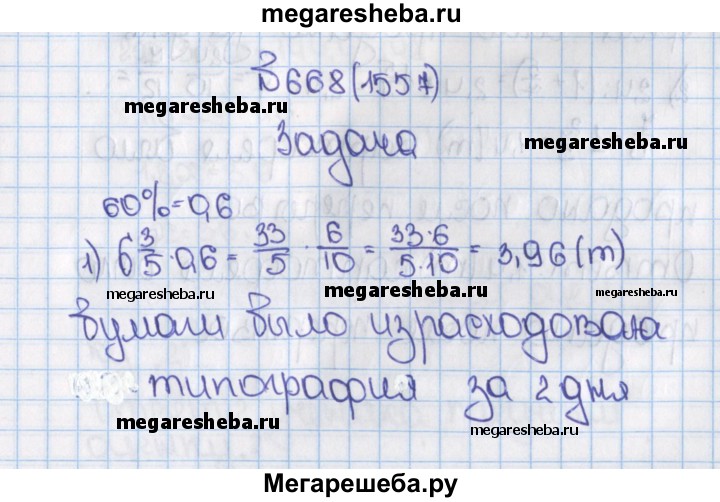 megaresheba.ru
В 668(1557)
megaresheba.ru
megaresheba.ru
Задача
60%=0,6
1) 6 3/5 · 0,6 = 33/5 · 6/10 = 33·6/5·10 = 3,96 (т)
megaresheba.ru
megaresheba.ru
megaresheba.ru
бумаги было израсходована
типография за 2 дня
megaresheba.ru
megaresheba.ru
Мегарешеба.ру